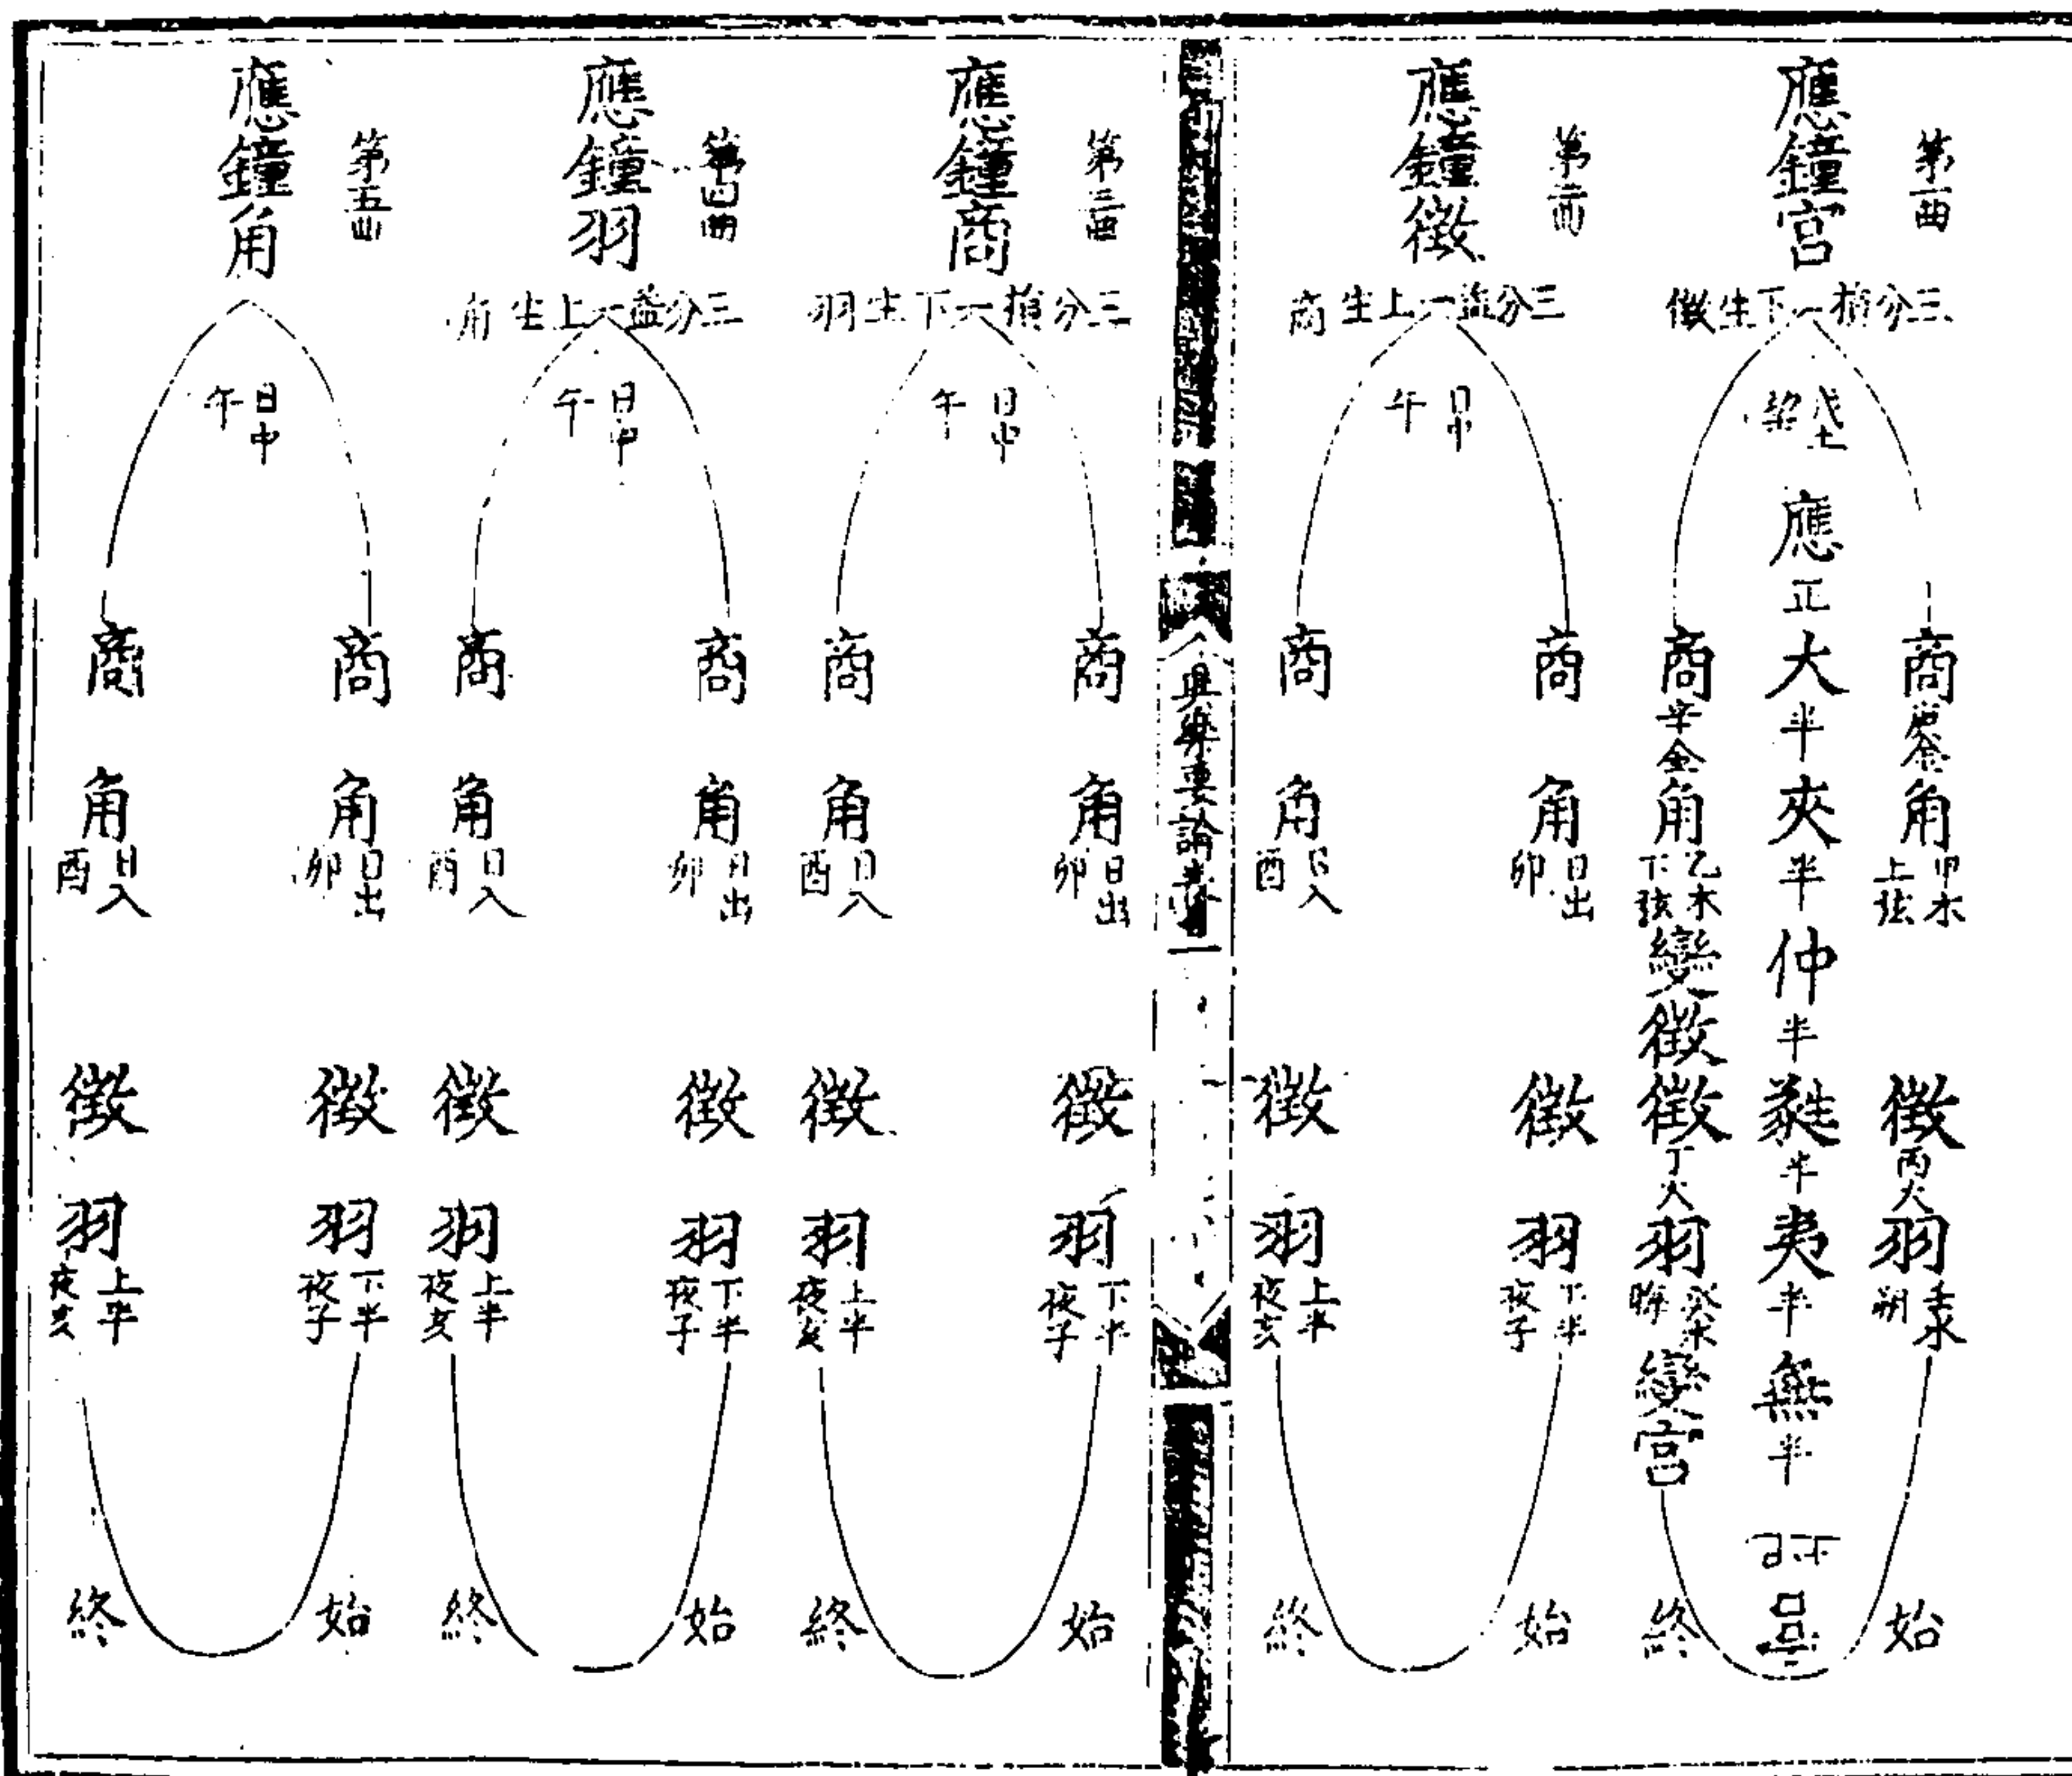 第一曲
應鐘宮
三分損一下生徵
戊土
應正大半夾半仲半蕤半夷半無半
商
角
甲木
上弦
徵
丙火
羽
壬水
朔
始
商
辛金
角
乙木
下弦
變徵
徵
丁火
羽
癸水
晦
變宮
終
第二曲
應鐘徵
三分益一上生商
日中
午
商
角
日出
卯
徵
羽
下半
夜子
始
商
角
日入
酉
徵
羽
上半
夜亥
終
第三曲
應鐘商
三分損一下生羽
日中
午
商
角
日出
卯
徵
羽
下半
夜子
始
商
角
日入
酉
徵
羽
上半
夜亥
終
第四曲
應鐘羽
三分益一上生角
日中
午
商
角
日出
卯
徵
羽
下半
夜子
始
商
角
日入
酉
徵
羽
上半
夜亥
終
第五曲
應鐘角
日中
午
商
角
日出
卯
徵
羽
下半
夜子
始
商
角
日入
酉
徵
羽
上半
夜亥
終